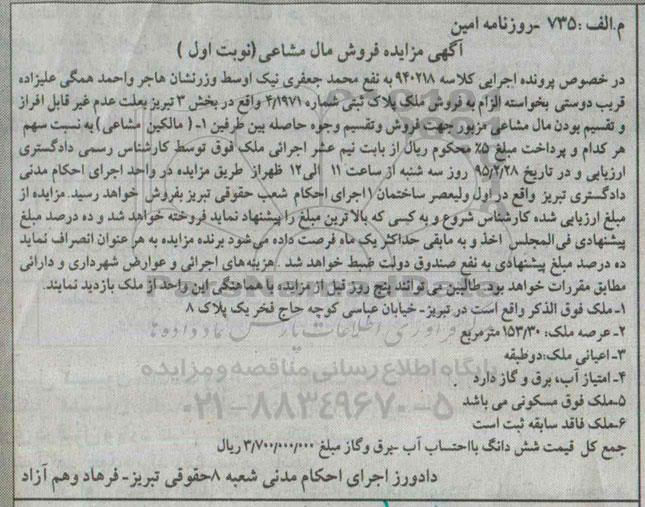 م.الف :۷۳۵ -روزنامه امین
آگهی مزایده فروش مال مشاعی(نوبت اول )
در خصوص پرونده اجرایی کلاسه ۹۴۰۲۱۸ به نفع محمد جعفری نیک اوسط وزرنشان هاجر واحمد همگی علیزاده
قریب دوستی بخواسته الزام به فروش ملک پلاک ثبتی شماره ۴/۱۹۷۱ واقع در بخش ۳ تبریز بعلت عدم غیر قابل افراز
و تقسیم بودن مال مشاعی مزبور جهت فروش وتقسیم وجوه حاصله بین طرفین ۱- ( مالکین مشاعی ) به نسبت سهم
هر کدام و پرداخت مبلغ ۵٪ محکوم ریال از بابت نیم عشر اجرائی ملک فوق توسط کارشناس رسمی دادگستری
ارزیابی و در تاریخ ۹۵/۲/۲۸ روز سه شنبه از ساعت ۱۱ الی۱۲ ظهراز طریق مزایده در واحد اجرای احکام مدنی
دادگستری تبریز واقع در اول ولیعصر ساختمان ۱اجرای احکام شعب حقوقی تبریز بفروش خواهد رسید. مزایده از
مبلغ ارزیابی شده کارشناس شروع و به کسی که بالا ترین مبلغ را پیشنهاد نماید فروخته خواهد شد و ده درصد مبلغ
پیشنهادی فی المجلس اخذ و به مابقی حداکثر یک ماه فرصت داده می شود برنده مزایده به هر عنوان انصراف نماید
ده درصد مبلغ پیشنهادی به نفع صندوق دولت ضبط خواهد شد .هزینه های اجرائی و عوارض شهرداری و دارائی
مطابق مقررات خواهد بود. طالبین می توانند پنج روز قبل از مزایده با هماهنگی این واحد از ملک بازدید نمایند.
۱-ملک فوق الذکر واقع است در تبریز- خیابان عباسی کوچه حاج فخر یک پلاک ۸
۲-عرصه ملک: ۱۵۳/۳۰ مترمربع
۳-اعیانی ملک:دوطبقه
۴- امتیاز آب، برق و گاز دارد
۵-ملک فوق مسکونی می باشد
۶-ملک فاقد سابقه ثبت است
جمع کل قیمت شش دانگ بااحتساب آب -برق وگاز مبلغ ۳/۷۰۰/۰۰۰/۰۰۰ ریال
دادورز اجرای احکام مدنی شعبه ۸حقوقی تبریز- فرهاد وهم آزاد
پایگاه اطلاع رسانی مناقصه و مزایده
۰۲۱-۸۸۳۴۹۶۷۰-۵